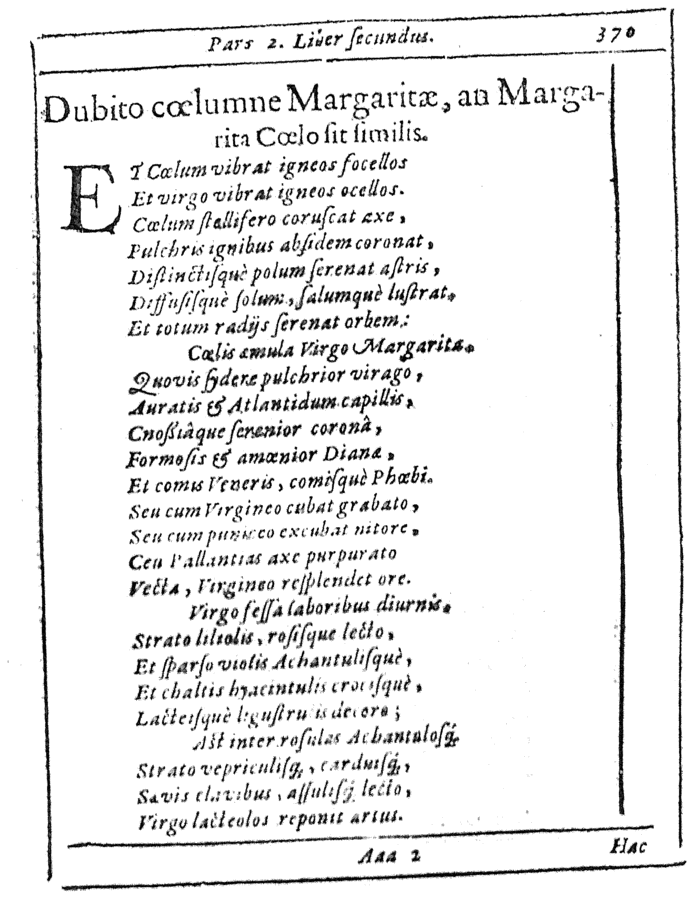 Pars 2. Liber ſecundus. 370
Dubito cœlumne Margaritæ, an Marga-
rita Cœlo ſit ſimilis.
ET Cœlum vibrat igneos focellos
Et virgo vibrat igneos ocellos.
Cœlum ſtellifero coruſcat axe,
Pulchris ignibus abſidem coronat,
Diſtinctiſquè polum ſerenat aſtris,
Diffuſiſquè ſolum, ſalumquè luſtrat.
Et totum radijs ſerenat orbem:
Cœlis æmula Virgo Margarita.
Quovis ſydere pulchrior virago,
Auratis & Atlantidum capillis,
Cnoſſiâque ſerenior coronâ,
Formoſis & amœnior Diana,
Et comis Veneris, comiſquè Phœbi.
Seu cum Virgineo cubat grabato,
Seu cum puniceo excubat nitore,
Ceu Pallantias axe purpurato
Vecta, Virgineo reſplendet ore.
Virgo feſſa laboribus diurnis.
Strato liliolis, roſiſque lecto,
Et ſparſo violis Achantuliſquè,
Et chaltis hyacintulis crociſquè,
Lacteiſquè liguſtru is decoro;
Aſt inter roſulas Achantuloſq́;
Strato vepriculiſq́;, carduiſq́;,
Sævis clavibus, aſſuliſq́; lecto,
Virgo lacteolos reponit artus.
Aaa 2 Hac